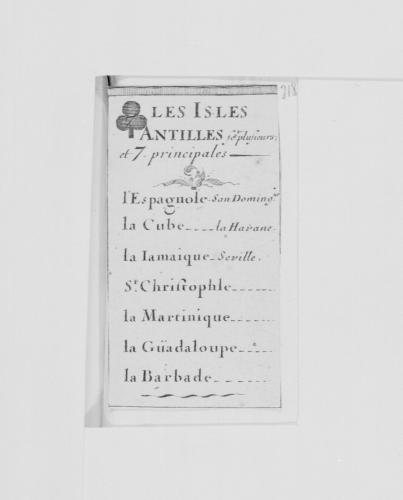 318
LES ISLES
ANTILLES sōt plusieurs;
et 7. principales
l'Espagnole San Doming.
la Cube la Havane
la Iamaique Seville.
St. Christophle
la Martinique
la Güadaloupe
la Barbade